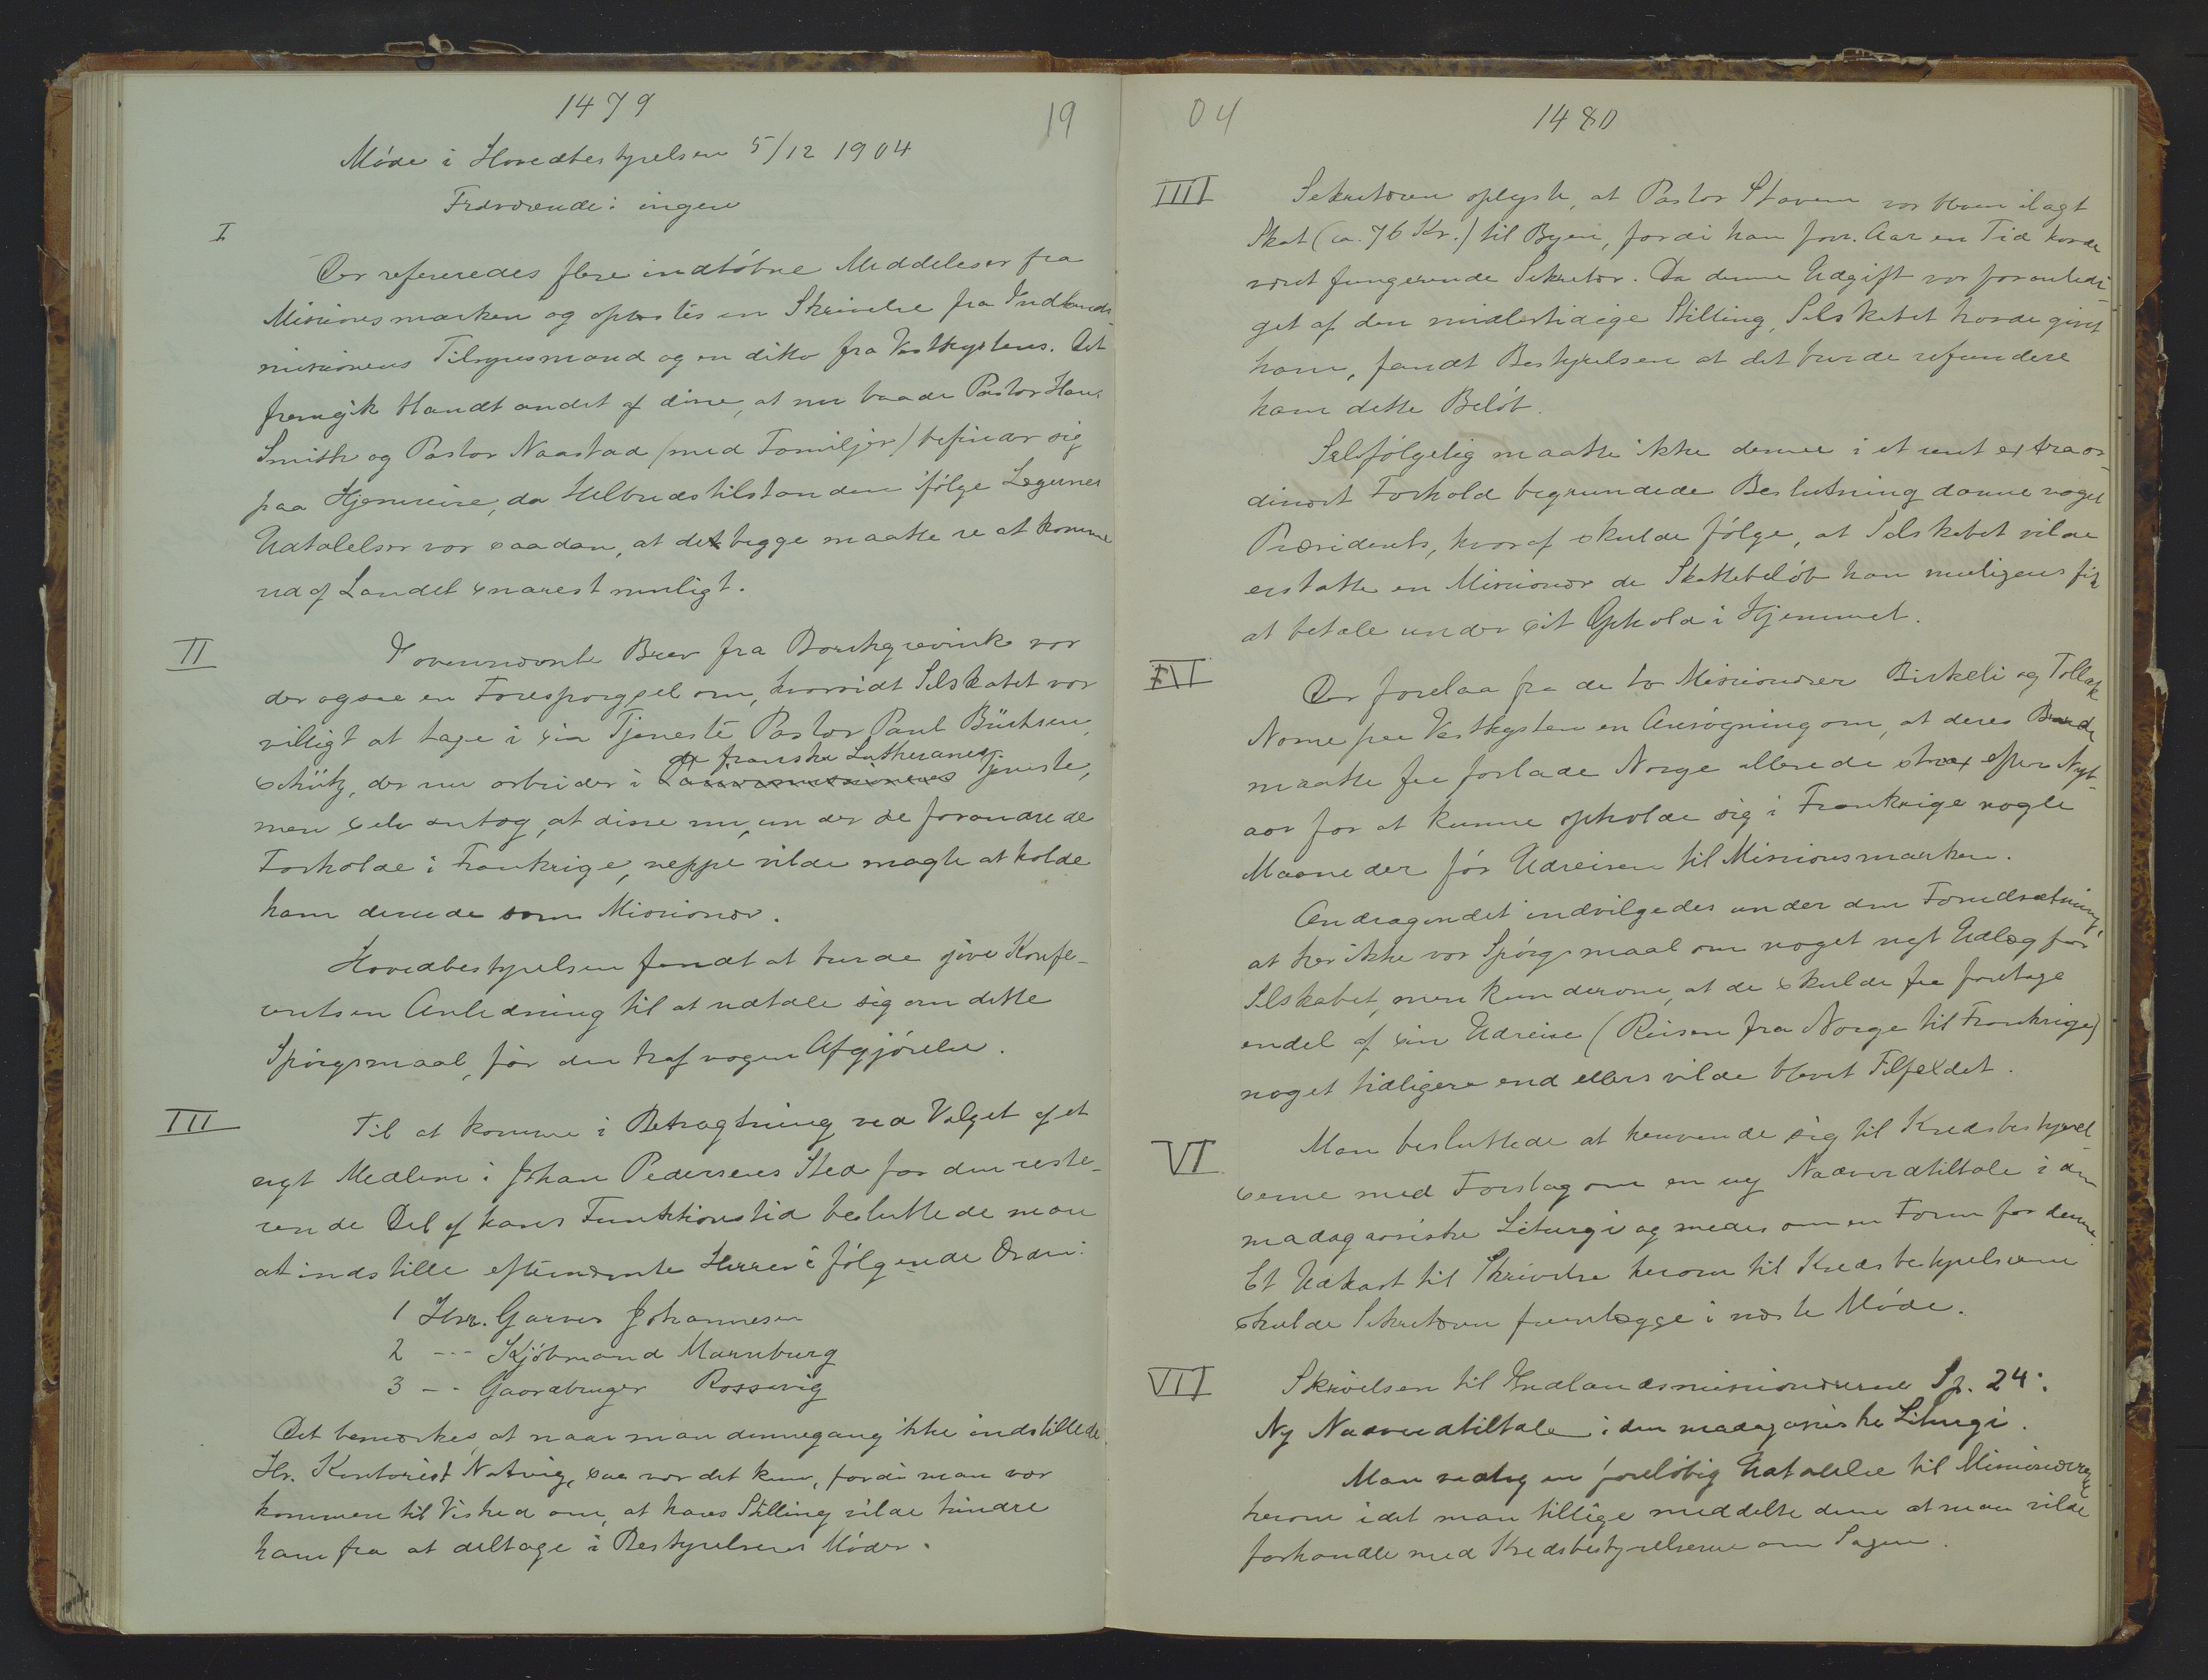 1479
19
Møde i Hovedbestyrelsen 5/12 1904
Fraværende: ingen
I
Der refereredes flere indløbne Meddelelser fra
Missionsmarken og oplæstes en Skrivelse fra Indlands-
missionens Tilsynsmand og en ditto fra Vestkystens. Det
fremgik blandt andet af disse, at nu baade Pastor Hans
Smith og Pastor Naastad (med Familjer) befinder sig
paa Hjemreise, da Helbredstilstanden ifølge Lægernes
Udtalelser var saadan, at de begge maatte se at komme
ud af Landet snarest muligt.
II
I ovennævnte Brev fra Borchgrevink var
der ogsaa en Forespørgsel om, hvorvidt Selskabet var
villigt at tage i sin Tjeneste Pastor Paul Büchsen-
de franske Lutheraneres
schütz, der nu arbeider i Tjeneste,
men selv antog, at disse nu, under de forandrede
Forholde i Frankrige, neppe vilde magte at holde
ham derude som Missionær.
Hovedbestyrelsen fandt at burde give Konfe-
rentsen Anledning til at udtale sig om dette
Spørgsmaal, før den traf nogen Afgjørelse.
III
Til at komme i Betragtning ved Valget af et
nyt Medlem i Johan Pedersens Sted for den reste-
rende Del af hans Funktionstid besluttede man
at indstille efternævnte Herrer i følgende Orden:
1 Hrr. Garver Johannesen
2 --- Kjøbmand Marnburg
3 -- Gaardbruger Rossavig
Det bemærkes, at naar man dennegang ikke indstillede
Hr. Kontorist Natvig, saa var det kun, fordi man var
kommen til Vished om, at hans Stilling vilde hindre
ham fra at deltage i Bestyrelsens Møder.
04
1480
IIII
Sekretæren oplyste, at Pastor Stavem var bleven ilagt
Skat (ca. 76 Kr.) til Byen, fordi han forr. Aar en Tid havde
været fungerende Sekretær. Da denne Udgift var foranledi-
get af den midlertidige Stilling, Selskabet havde givet
ham, fandt Bestyrelsen at det burde refundere
ham dette Beløb.
Selvfølgelig maatte ikke denne i et rent extraor-
dinært Forhold begrundede Beslutning danne noget
Præcidents, hvoraf skulde følge, at Selskabet vilde
erstatte en Missionær de Skattebeløb han muligens fik
at betale under sit Ophold i Hjemmet.
VI
Der forelaa fra de to Missionærer Birkeli og Tollak
Nome paa Vestkysten en Ansøgning om, at deres Brude
maatte faa forlade Norge allerede strax efter Nyt-
aar for at kunne opholde sig i Frankrige nogle
Maaneder før Udreisen til Missionsmarken.
Andragendet indvilgedes under den Forudsætning,
at her ikke var Spørgsmaal om noget nyt Udlæg for
Selskabet, men kun derom, at de skulde faa foretage
endel af sin Udreise (Reisen fra Norge til Frankrige)
noget tidligere end ellers vilde blevet Tilfeldet.
VI
Man besluttede at henvende sig til Kredsbestyrel-
serne med Forslag om en ny Nadverdtiltale i den
madagassiske Liturgi og medes om en Form for denne.
Et Udkast til Skrivelse herom til Kredsbestyrelserne
skulde Sekretæren fremlægge i næste Møde.
VII
Skrivelsen til Indlandsmissionærerne Sp. 24:
Ny Nadverdtiltale i den madagassiske Liturgi.
Man vedtog en foreløbig Udtalelse til Missionærerne
herom idet man tillige meddelte dem at man vilde
forhandle med Kredsbestyrelserne om Sagen.